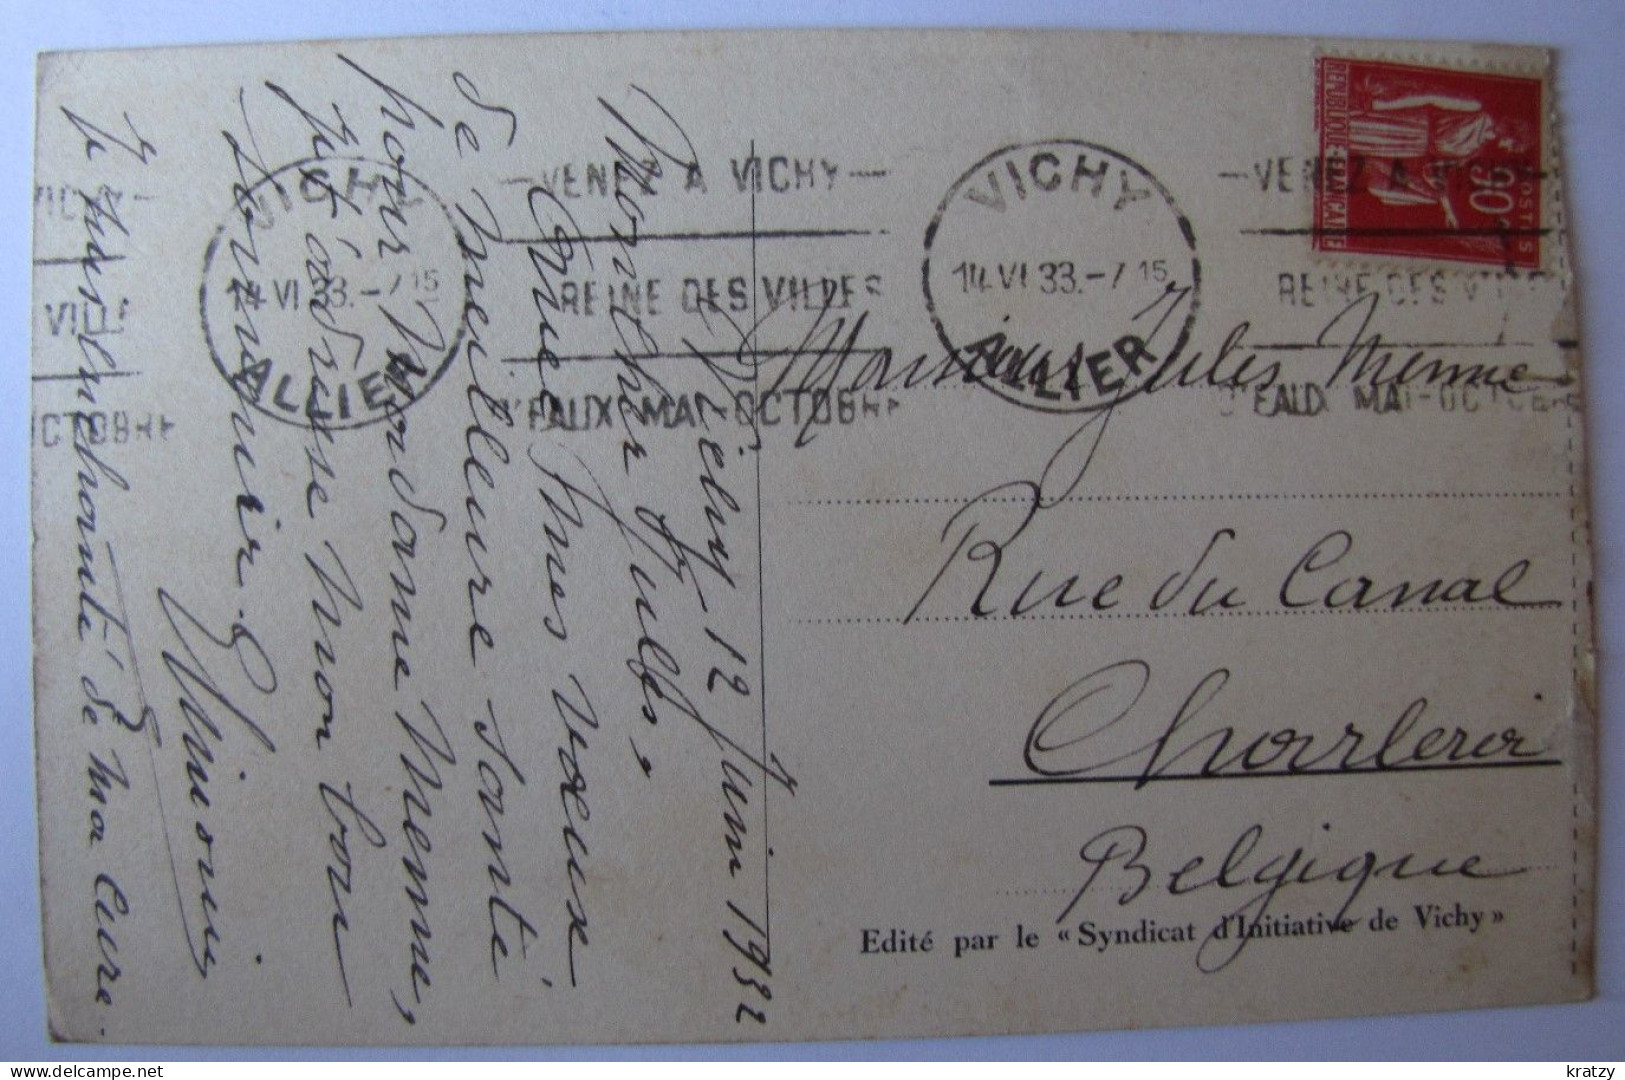 Vichy 12 Juin 1932
Mon cher Jules,
Avec mes voeux
de meilleure santé
pour Madame Menne,
je t'adresse mon bon
souvenir.
de ma cure.
VICHY
14 VI 33.-7 15
ALLIER
VENEZ A VICHY
REINE DES VILLES
D'EAUX MAI-OCTOBRE
VICHY
14 VI 33.-7 15
ALLIER
VENEZ A VICHY
REINE DES VILLES
D'EAUX MAI-OCTOBRE
REPUBLIQUE FRANÇAISE
POSTES
90
Monsieur Jules Menne
Rue du Canal
Charleroi
Belgique
Edité par le « Syndicat d'Initiative de Vichy »
kratzy
delcampe.net